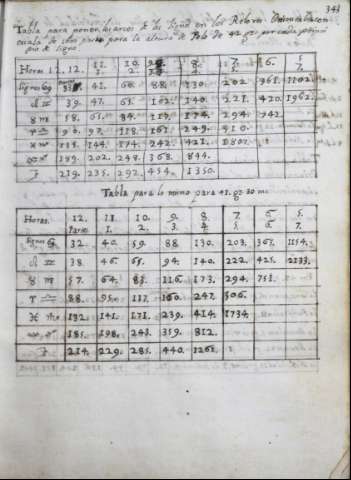 343
Tabla para poner los arcos de los signos en los Reloxes Orientales con
escala de doze partes para la altura de Polo de 42. gr por cada principio
pio de signo.
Horas 12. 12. 11. 10. 9. 8. 7. 6. 5.
signos ♋ 33. 41. 60. 88. 130. 202. 361. 1102
♌ ♊ 39. 47. 65. 140. 221. 420. 1962.
♍ ♉ 58. 65. 84. 117. 174. 294. 742.
♈ ♎ 90. 97. 118. 161. 249. 510.
♓ ♏ 144. 174. 242. 421. 1801.
♒ ♐ 189. 202. 248. 368. 844.
♑ 219. 235. 292. 454. 1350.
Tabla para lo mismo para 41. gr 30 m.
Horas. 12. 11. 10. 9. 8. 7. 6. 5.
Partes 1. 2. 3. 4. 5. 6. 7.
signos ♋ 32. 40. 59. 88 130. 203. 363. 1154.
♌ ♊ 38. 46. 65. 94. 140. 222. 425. 2133.
♍ ♉ 57. 64. 83. 116. 173. 294. 751.
♈ ♎ 88. 95. 117. 160. 247. 506.
♓ ♏ 132. 141. 171. 239. 414. 1734.
♒ ♐ 185. 198. 243. 359. 812.
♑ 214. 229. 285. 440. 1261.